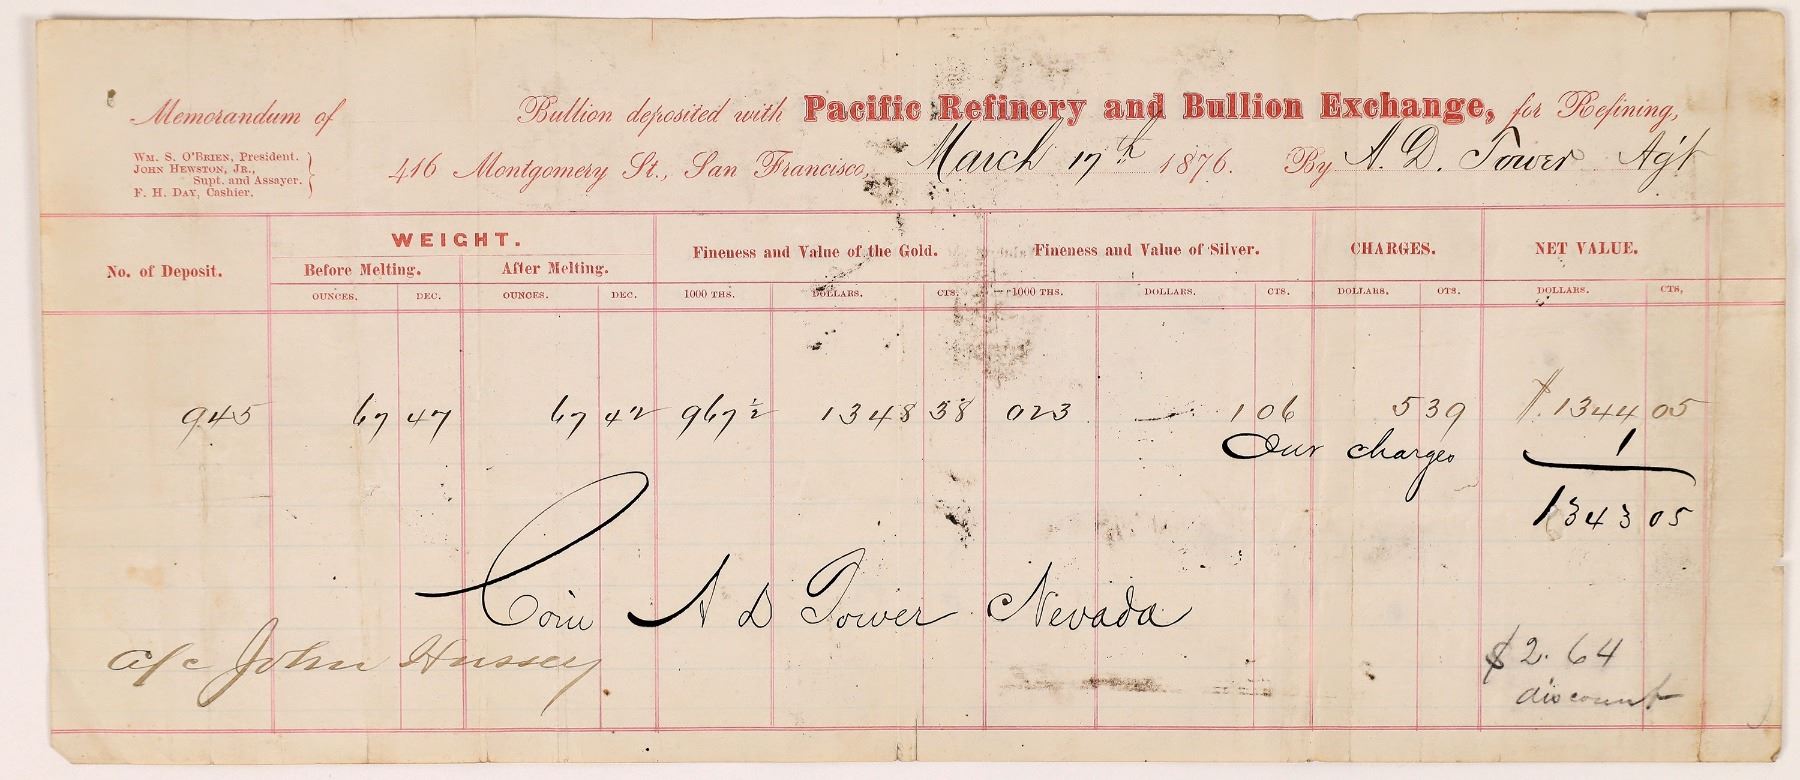 Memorandum of Bullion deposited with Pacific Refinery and Bullion Exchange, for Refining,
WM. S. O'BRIEN, President.
JOHN HEWSTON, JR.,
Supt. and Assayer.
F. H. DAY, Cashier.
416 Montgomery St., San Francisco, March 17th 1876. By A. D. Tower Agt
No. of Deposit. WEIGHT. Fineness and Value of the Gold. Fineness and Value of Silver. CHARGES. NET VALUE.
Before Melting. After Melting.
OUNCES. DEC. OUNCES. DEC. 1000 THS. DOLLARS. CTS. 1000 THS. DOLLARS. CTS. DOLLARS. CTS. DOLLARS. CTS.
945 67 47 67 42 967 1/2 1348 38 023 — 1 06 5 39 $ 1344 05
Our charges 1
1343 05
Coin A D Tower Nevada
a/c John Hussey
$2.64
discount